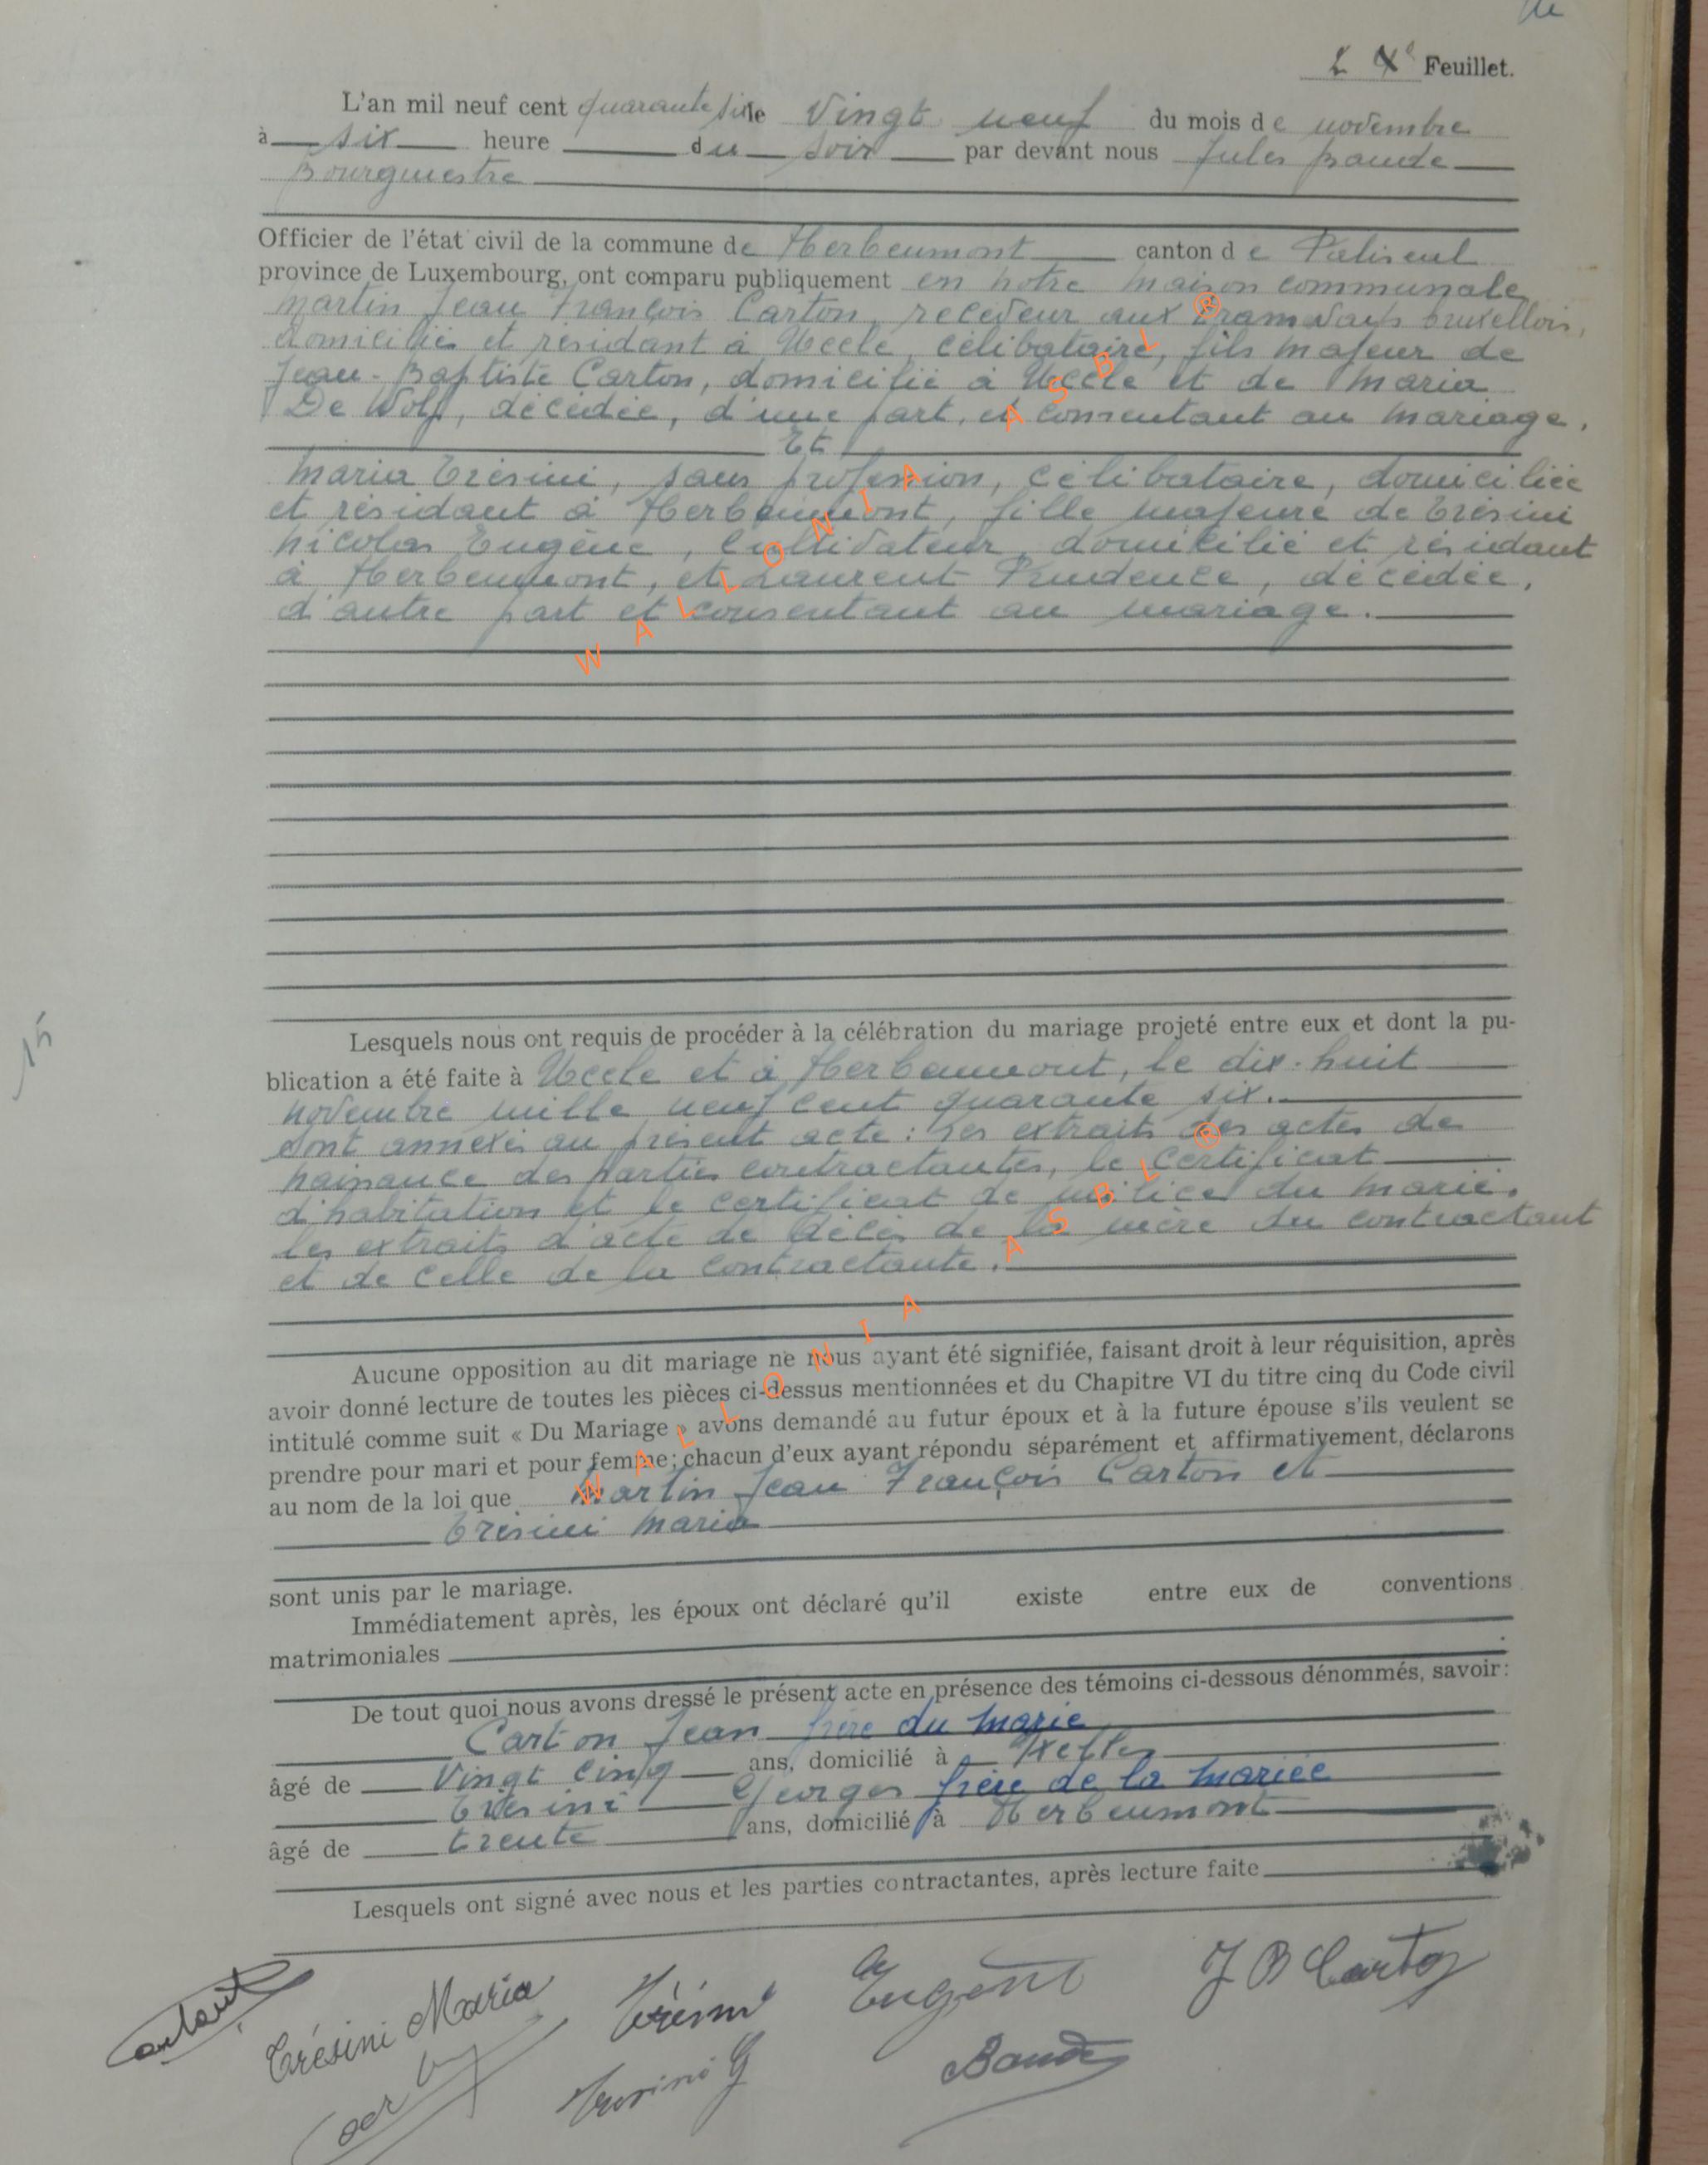 2 Xe Feuillet.
L'an mil neuf cent quarante six le Vingt neuf du mois de novembre
à six heure du soir par devant nous Jules Baude
Bourgmestre
Officier de l'état civil de la commune de Herbeumont canton de Paliseul
province de Luxembourg, ont comparu publiquement en notre maison communale
Martin Jean François Carton, receveur aux tramways bruxellois,
domicilié et résidant à Uccle, célibataire, fils majeur de
Jean-Baptiste Carton, domicilié à Uccle et de Maria
De Wolf, décédée, d'une part, et consentant au mariage.
Et
Maria Trésini, sans profession, célibataire, domiciliée
et résidant à Herbeumont, fille majeure de Trésini
Nicolas Eugène, Cultivateur, domicilié et résidant
à Herbeumont, et Laurent Prudence, décédée,
d'autre part et consentant au mariage.
Lesquels nous ont requis de procéder à la célébration du mariage projeté entre eux et dont la pu-
blication a été faite à Uccle et à Herbeumont, le dix-huit
novembre mille neuf cent quarante six.
Sont annexés au présent acte : Les extraits des actes de
naissance des parties contractantes, le certificat
d'habitation et le certificat de milice du marié.
les extraits d'acte de décès de la mère du contractant
et de celle de la contractante.
Aucune opposition au dit mariage ne nous ayant été signifiée, faisant droit à leur réquisition, après
avoir donné lecture de toutes les pièces ci-dessus mentionnées et du Chapitre VI du titre cinq du Code civil
intitulé comme suit « Du Mariage » avons demandé au futur époux et à la future épouse s'ils veulent se
prendre pour mari et pour femme; chacun d'eux ayant répondu séparément et affirmativement, déclarons
au nom de la loi que Martin Jean François Carton et
Trésini Maria
sont unis par le mariage.
Immédiatement après, les époux ont déclaré qu'il existe entre eux de conventions
matrimoniales
De tout quoi nous avons dressé le présent acte en présence des témoins ci-dessous dénommés, savoir:
Carton Jean frère du marié
âgé de Vingt cinq ans, domicilié à Ixelles
Trésini Georges frère de la mariée
âgé de trente ans, domicilié à Herbeumont
Lesquels ont signé avec nous et les parties contractantes, après lecture faite
Trésini Maria Trésini Eugène J B Carton
Tresini G Baude
15
WALLONIA ASBL ®
WALLONIA ASBL ®